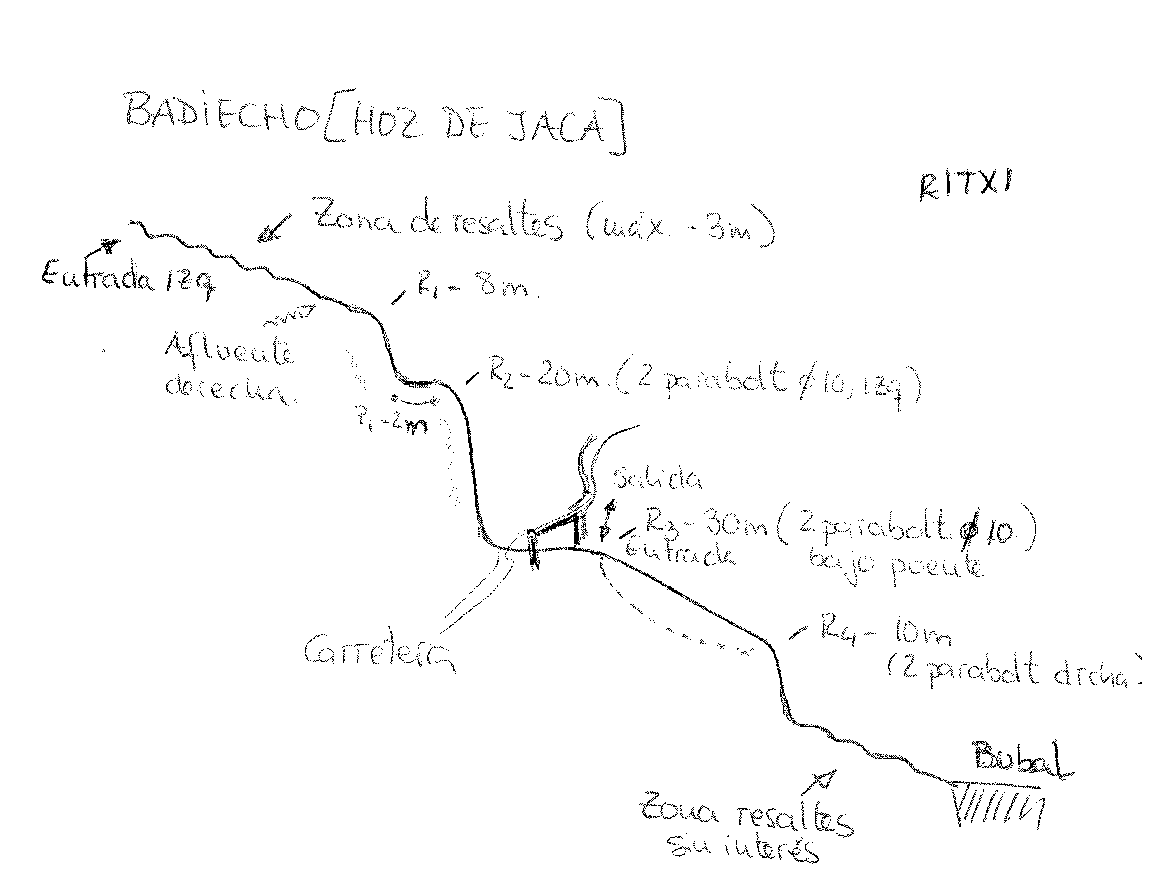 BADIECHO [HOZ DE JACA]
RITXI
Zona de resaltes (máx. -3m)
Entrada izq
R1 - 8m.
Afluente
derecha.
R2 - 20m. (2 parabolt ø10, izq)
P1 - 2m
salida
R3 - 30m (2 parabolt ø10)
Entrada
bajo puente
Carretera
R4 - 10m
(2 parabolt drcha.
Bubal
Zona resaltes
sin interés